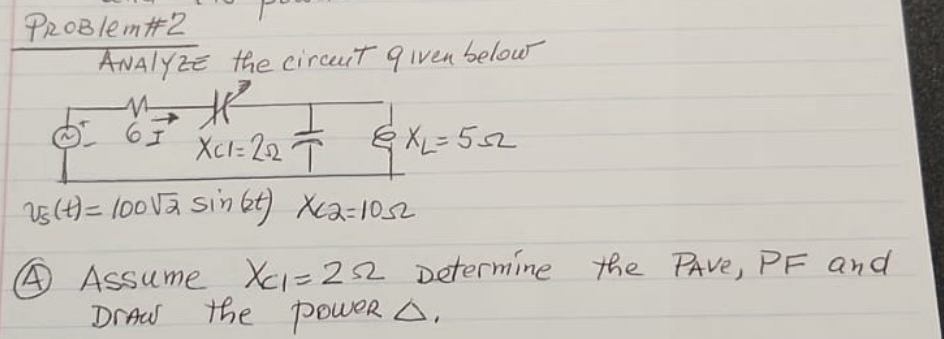 PROBlem#2
ANALYZE the circuit given below
+
-
6 I
XC1=2Ω
XL=5Ω
vs(t)=100√2 sin(2t) XC2=10Ω
A Assume XC1=2Ω Determine the PAve, PF and
DRAW the power Δ.